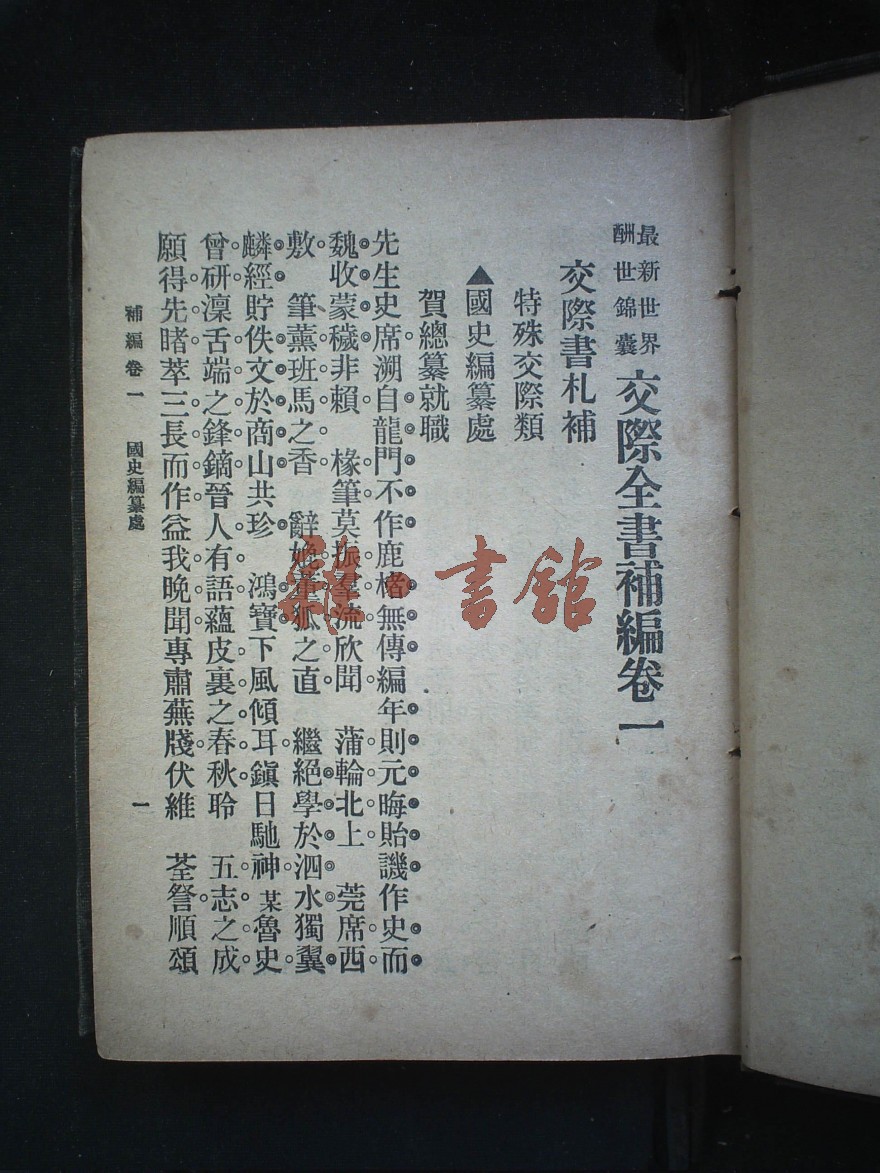 最新世界
酬世錦囊
交際全書補編卷一
交際書札補
特殊交際類
▲國史編纂處
賀總纂就職
先生史席溯自龍門不作鹿樁無傳編年則元晦貽譏作史而
魏收蒙穢非賴 椽筆莫振羣流欣聞 蒲輪北上 莞席西
敷 筆薰班馬之香 辭媲董狐之直 繼絕學於泗水獨翼
麟經貯佚文於商山共珍 鴻寶下風傾耳鎮日馳神某魯史
曾研凜舌端之鋒鏑晉人有語蘊皮裏之春秋聆 五志之成
願得先睹萃三長而作益我晚聞專肅蕪牋伏維 荃詧順頌
補編卷一 國史編纂處 一
雜·書館